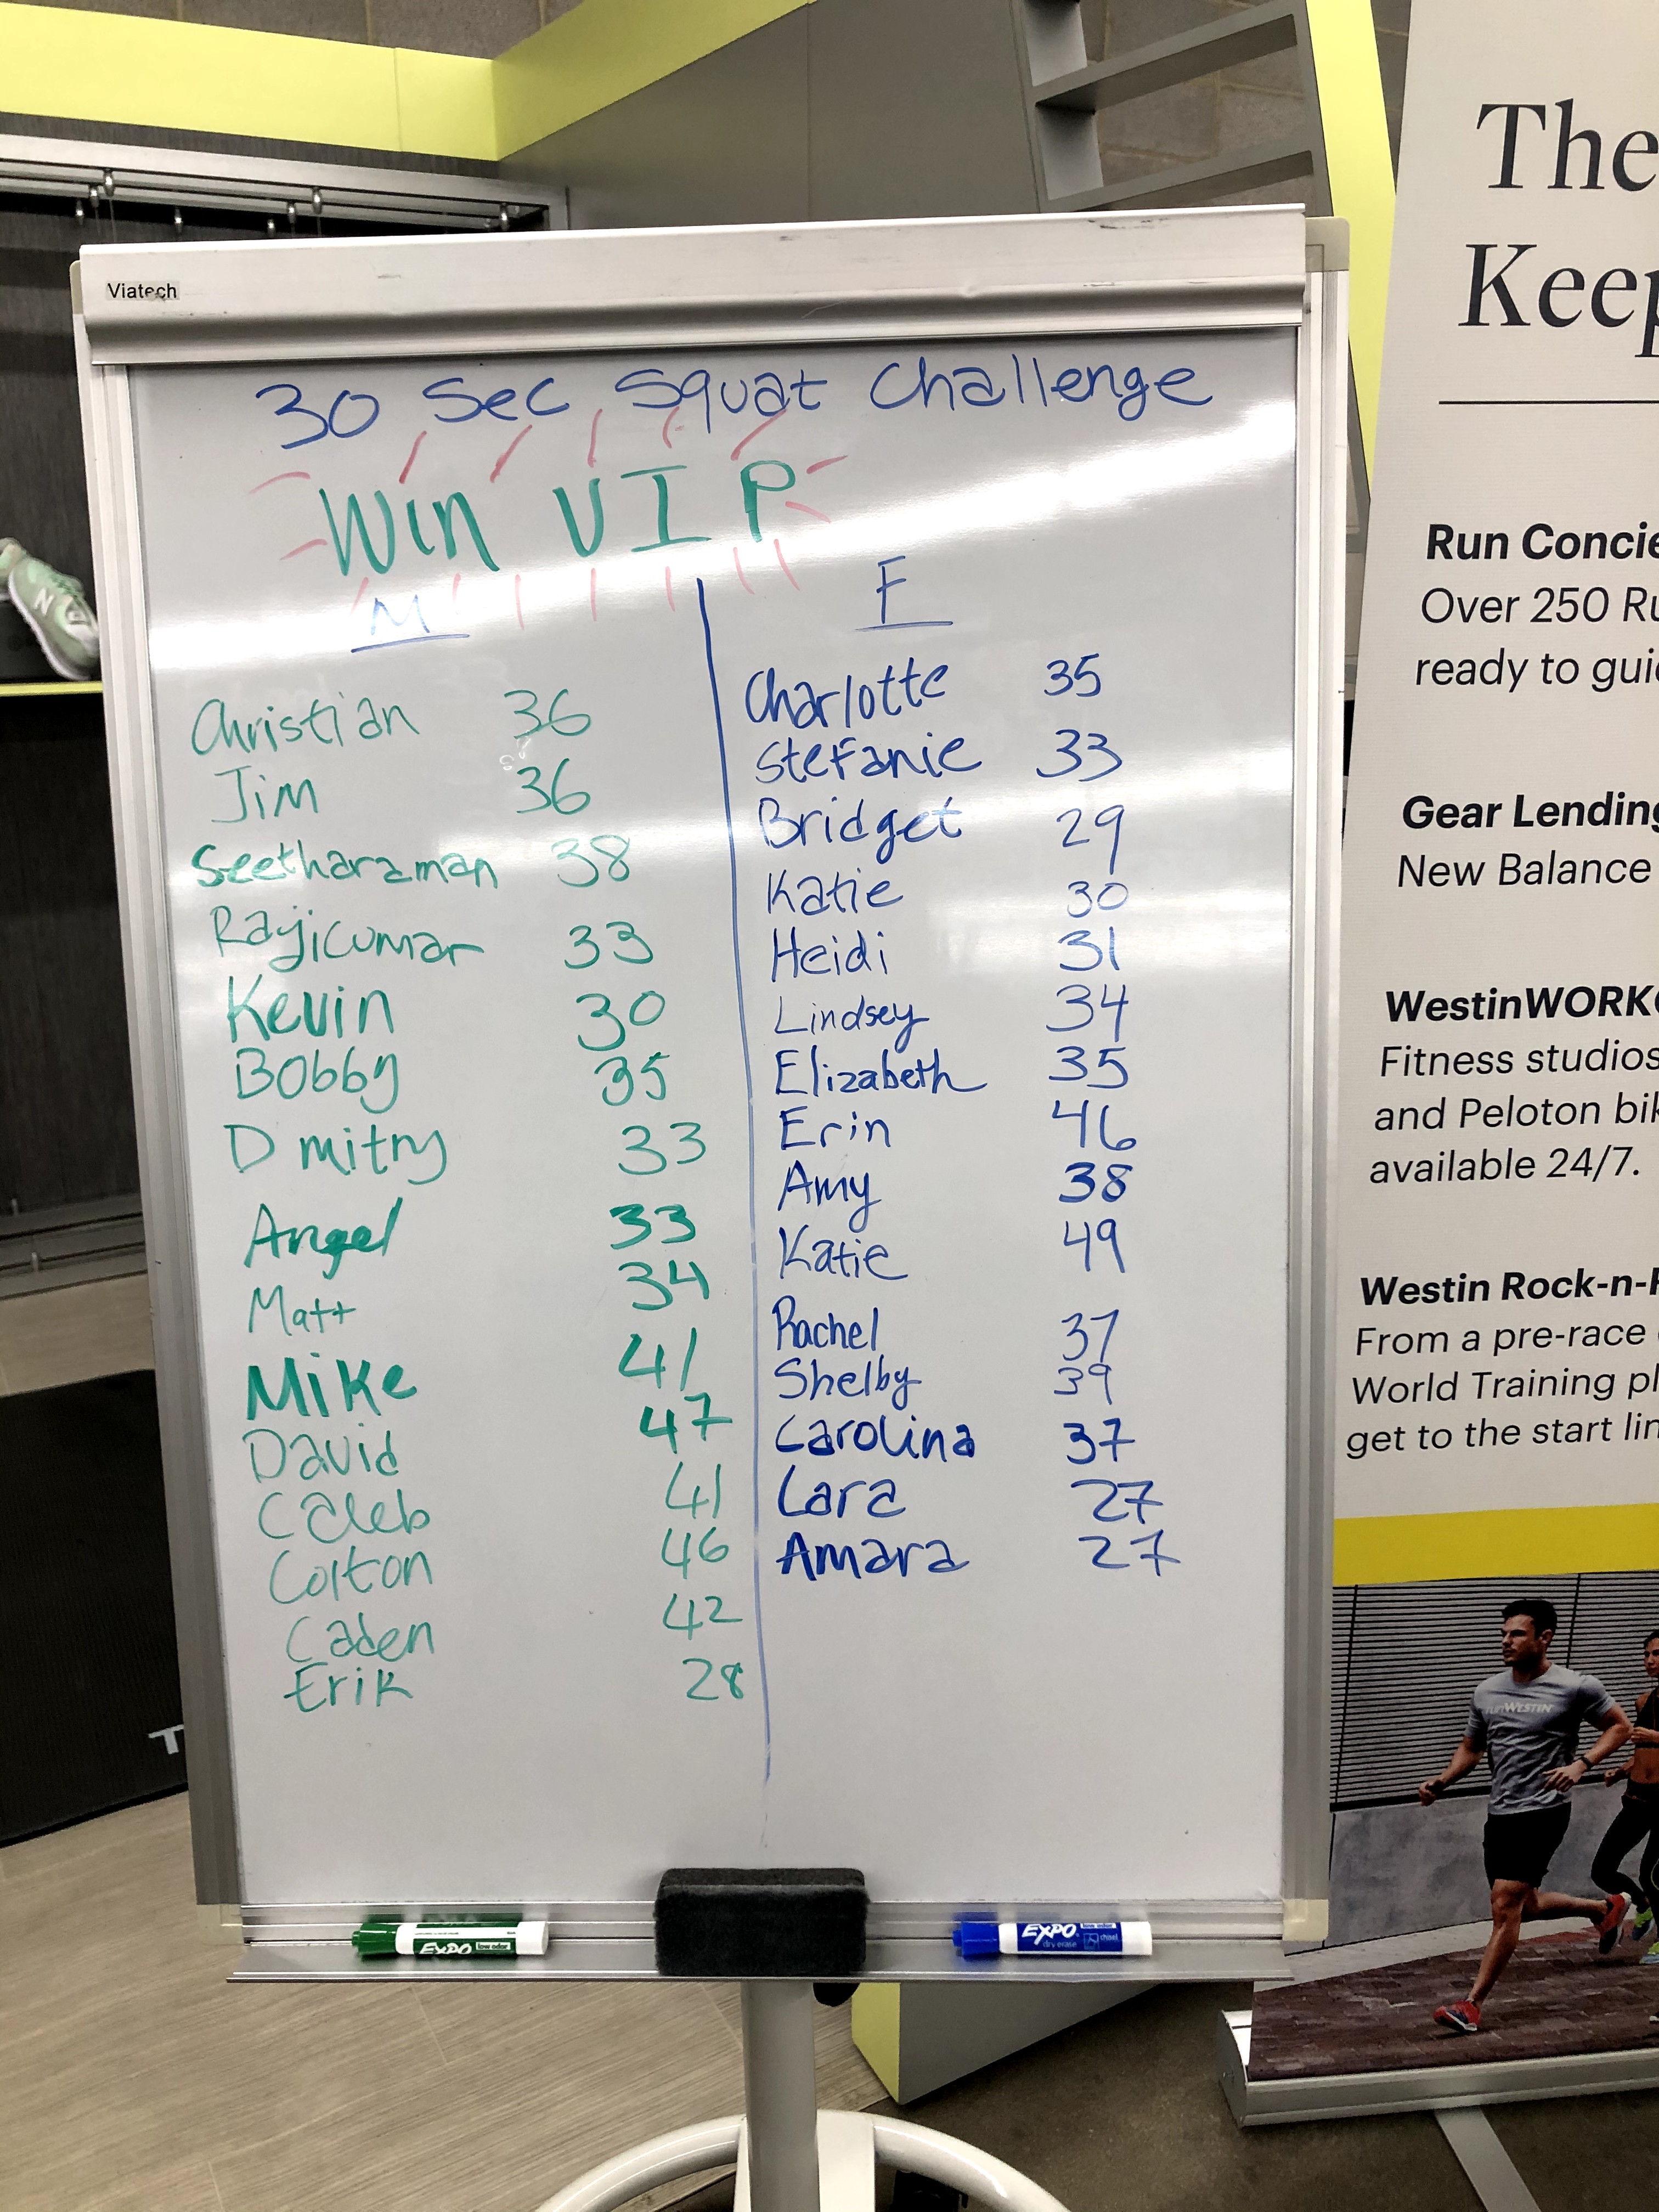 Viatech
30 Sec Squat Challenge
Win VIP
M
Christian 36
Jim 36
Seetharaman 38
Rajicumar 33
Kevin 30
Bobby 35
Dmitry 33
Angel 33
Matt 34
Mike 41
David 47
Caleb 41
Colton 46
Caden 42
Erik 28
F
Charlotte 35
Stefanie 33
Bridget 29
Katie 30
Heidi 31
Lindsey 34
Elizabeth 35
Erin 46
Amy 38
Katie 49
Rachel 37
Shelby 39
Carolina 37
Lara 27
Amara 27
EXPO low odor
EXPO low odor
dry erase chisel
The
Keep
Run Concie
Over 250 Ru
ready to guid
Gear Lending
New Balance
WestinWORKO
Fitness studios
and Peloton bik
available 24/7.
Westin Rock-n-R
From a pre-race
World Training pl
get to the start lin
WESTIN
N
T